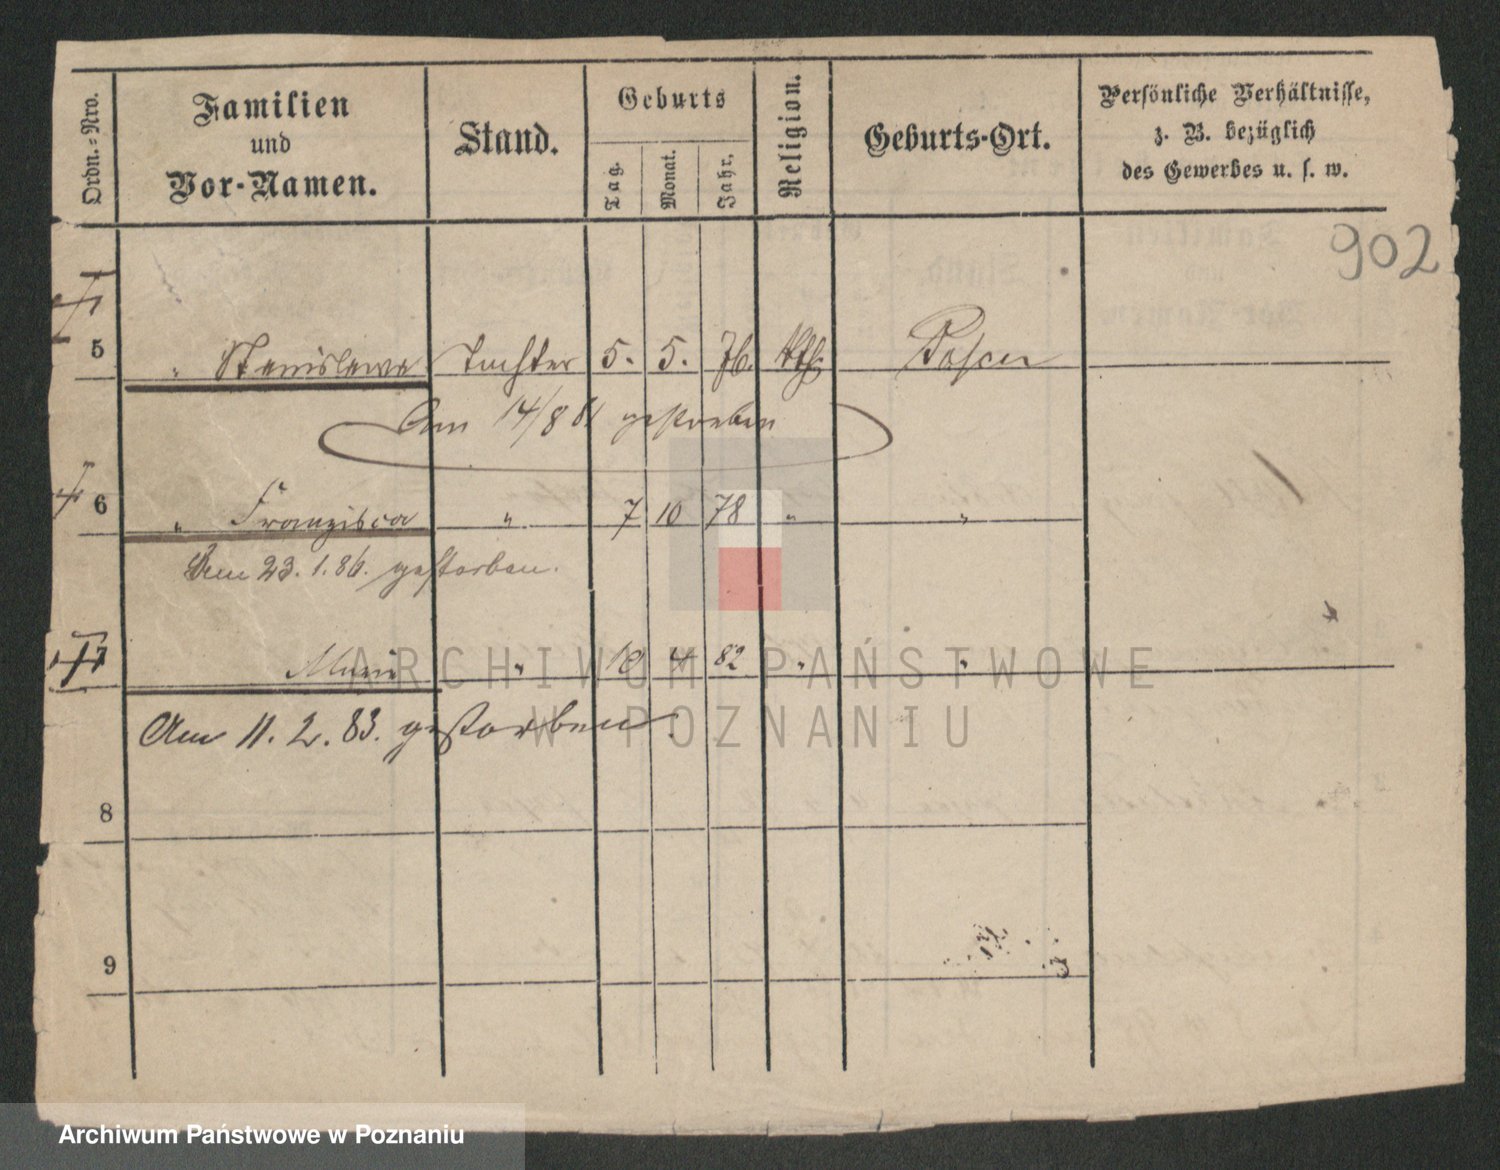 Ordn.=Nro.
Familien
und
Vor-Namen.
Stand.
Geburts
Tag.
Monat.
Jahr.
Religion.
Geburts-Ort.
Persönliche Verhältnisse,
z. B. bezüglich
des Gewerbes u. s. w.
902
5 " Stanislawa Tochter 5. 5. 76. kth. Posen
Am 14/8 81 gestorben
6 " Franzisca " 7 10 78 " "
Dem 23.1.86. gestorben.
7 Marie " 10 4 82 " "
Am 11. 2. 83. gestorben.
8
9
ARCHIWUM PAŃSTWOWE
W POZNANIU
Archiwum Państwowe w Poznaniu